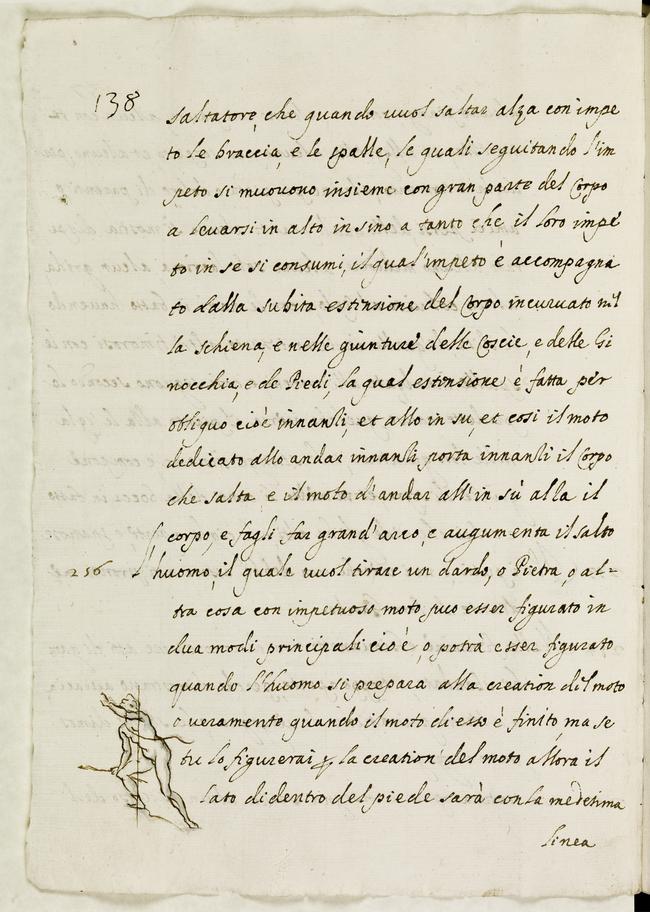 138
saltatore, che quando vuol saltar alza con impe
to le braccia, e le spalle, le quali seguitando l'im
peto si muovono insieme con gran parte del Corpo
a levarsi in alto in sino a tanto che il loro impe
to in se si consumi, il qual'impeto è accompagna
to dalla subita estensione del Corpo incurvato nel
la schiena, e nelle giunture delle Coscie, e delle Gi
nocchia, e de Piedi, la qual estensione è fatta per
obliquo cioè innanti, et allo in su, et cosi il moto
dedicato allo andar innanti porta innanti il Corpo
che salta e il moto d'andar all'in sù alla il
corpo, e fagli far grand'arco, e augumenta il salto
256 l'huomo, il quale vuol tirare un dardo, o Pietra, o al-
tra cosa con impetuoso moto puo esser figurato in
dua modi principali cioè, o potrà esser figurato
quando l'huomo si prepara alla creation del moto
o veramente quando il moto di esso è finito, ma se
tu lo figurerai la creation del moto allora il
lato di dentro del piede sarà con la medesima
linea